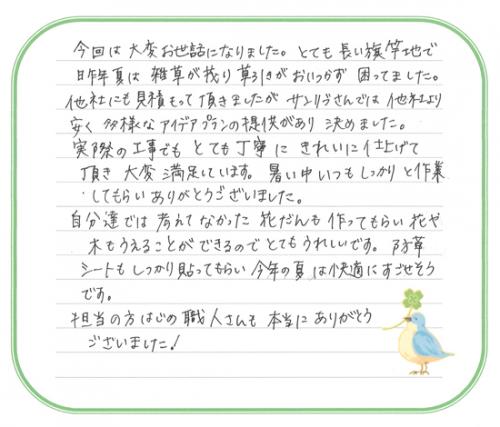 今回は大変お世話になりました。とても長い旗竿地で
昨年夏は雑草が茂り草引きがおいつかず困ってました。
他社にも見積もって頂きましたがサンリブさんでは他社より
安く多様なアイデアプランの提供があり決めました。
実際の工事でもとても丁寧にきれいに仕上げて
頂き大変満足しています。暑い中いつもしっかりと作業
してもらいありがとうございました。
自分達では考えてなかった花だんも作ってもらい花や
木もうえることができるのでとてもうれしいです。防草
シートもしっかり貼ってもらい今年の夏は快適にすごせそう
です。
担当の方はじめ職人さんも本当にありがとう
ございました!